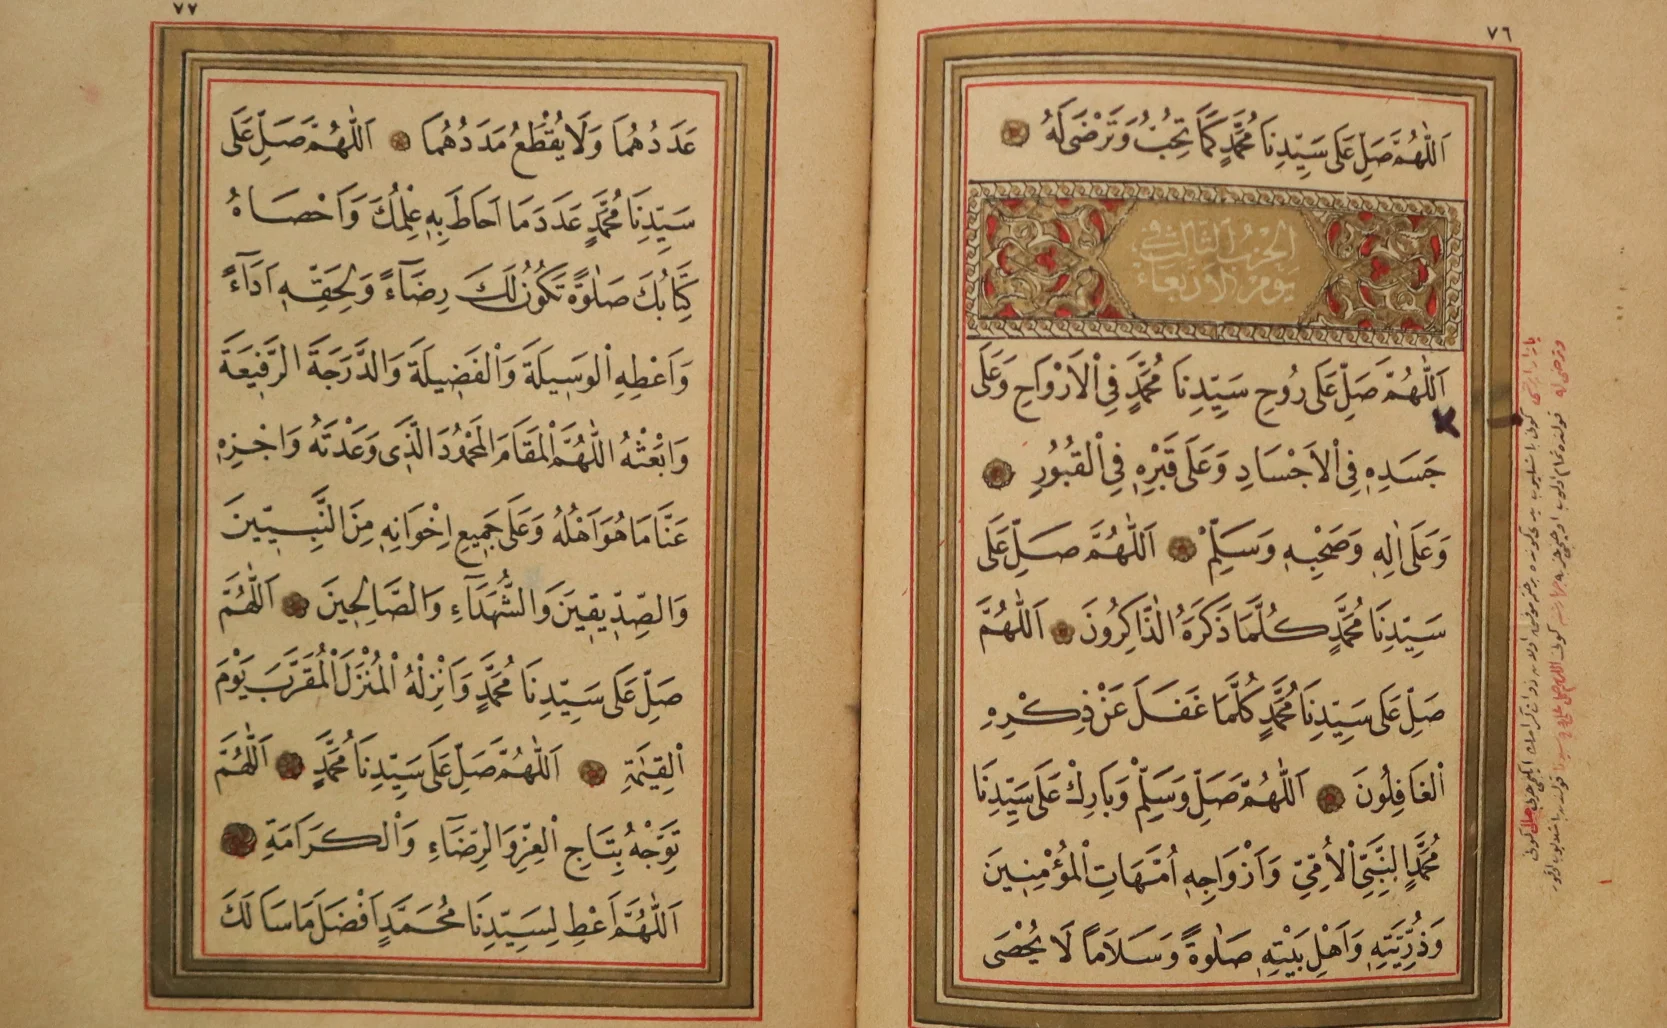 ٧٦
اَللّٰهُمَّ صَلِّ عَلٰى سَيِّدِنَا مُحَمَّدٍ كَمَا تُحِبُّ وَتَرْضٰى لَهُ
الحزب الثالث في
يوم الاربعاء
اَللّٰهُمَّ صَلِّ عَلٰى رُوحِ سَيِّدِنَا مُحَمَّدٍ فِى الْاَرْوَاحِ وَعَلٰى
جَسَدِهٖ فِى الْاَجْسَادِ وَعَلٰى قَبْرِهٖ فِى الْقُبُورِ
وَعَلٰى اٰلِهٖ وَصَحْبِهٖ وَسَلِّمْ اَللّٰهُمَّ صَلِّ عَلٰى
سَيِّدِنَا مُحَمَّدٍ كُلَّمَا ذَكَرَهُ الذَّاكِرُونَ اَللّٰهُمَّ
صَلِّ عَلٰى سَيِّدِنَا مُحَمَّدٍ كُلَّمَا غَفَلَ عَنْ ذِكْرِهِ
الْغَافِلُونَ اَللّٰهُمَّ صَلِّ وَسَلِّمْ وَبَارِكْ عَلٰى سَيِّدِنَا
مُحَمَّدٍ النَّبِيِّ الْاُمِّيِّ وَاَزْوَاجِهٖ اُمَّهَاتِ الْمُؤْمِنِينَ
وَذُرِّيَّتِهٖ وَاَهْلِ بَيْتِهٖ صَلٰوةً وَسَلَامًا لَا يُحْصٰى
٧٧
عَدَدُهُمَا وَلَا يُقْطَعُ مَدَدُهُمَا اَللّٰهُمَّ صَلِّ عَلٰى
سَيِّدِنَا مُحَمَّدٍ عَدَدَ مَا اَحَاطَ بِهٖ عِلْمُكَ وَاَحْصَاهُ
كِتَابُكَ صَلٰوةً تَكُونُ لَكَ رِضَآءً وَلِحَقِّهٖ اَدَآءً
وَاَعْطِهِ الْوَسِيلَةَ وَالْفَضِيلَةَ وَالدَّرَجَةَ الرَّفِيعَةَ
وَابْعَثْهُ اللّٰهُمَّ الْمَقَامَ الْمَحْمُودَ الَّذِى وَعَدْتَهُ وَاجْزِهٖ
عَنَّا مَا هُوَ اَهْلُهُ وَعَلٰى جَمِيعِ اِخْوَانِهٖ مِنَ النَّبِيِّينَ
وَالصِّدِّيقِينَ وَالشُّهَدَآءِ وَالصَّالِحِينَ اَللّٰهُمَّ
صَلِّ عَلٰى سَيِّدِنَا مُحَمَّدٍ وَاَنْزِلْهُ الْمُنْزَلَ الْمُقَرَّبَ يَوْمَ
الْقِيٰمَةِ اَللّٰهُمَّ صَلِّ عَلٰى سَيِّدِنَا مُحَمَّدٍ اَللّٰهُمَّ
تَوِّجْهُ بِتَاجِ الْعِزِّ وَالرِّضَآءِ وَالْكَرَامَةِ
اَللّٰهُمَّ اَعْطِ لِسَيِّدِنَا مُحَمَّدٍ اَفْضَلَ مَا سَاَلَكَ